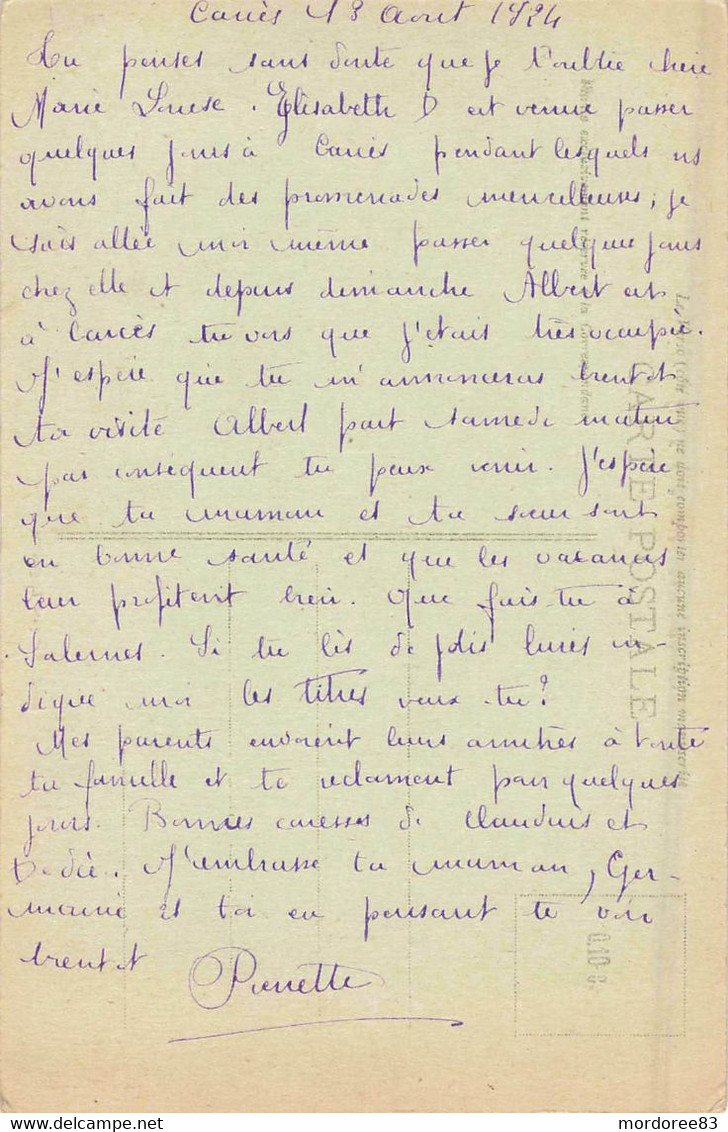 Carcès 13 Aout 1924
Tu penses sans doute que je t'oublie chère
Marie Louise. Elisabeth D est venue passer
quelques jours à Carcès pendant lesquels ns
avons fait des promenades merveilleuses; je
suis allée moi même passer quelques jours
chez elle et depuis dimanche Albert est
à Carcès tu vois que j'étais très occupée.
J'espère que tu m'annonceras bientôt
ta visite Albert part samedi matin
par conséquent tu peux venir. J'espère
que ta maman et ta sœur sont
en bonne santé et que les vacances
leur profitent bien. Que fais-tu à
Salernes. Si tu lis de jolis livres in-
dique moi les titres veux-tu?
Mes parents envoient leurs amitiés à toute
ta famille et te réclament pour quelques
jours. Bonnes caresses de Claudius et
Dédée. J'embrasse ta maman, Ger-
maine et toi en pensant te voir
bientôt
Pierrette
CARTE POSTALE
0.10
mordoree83